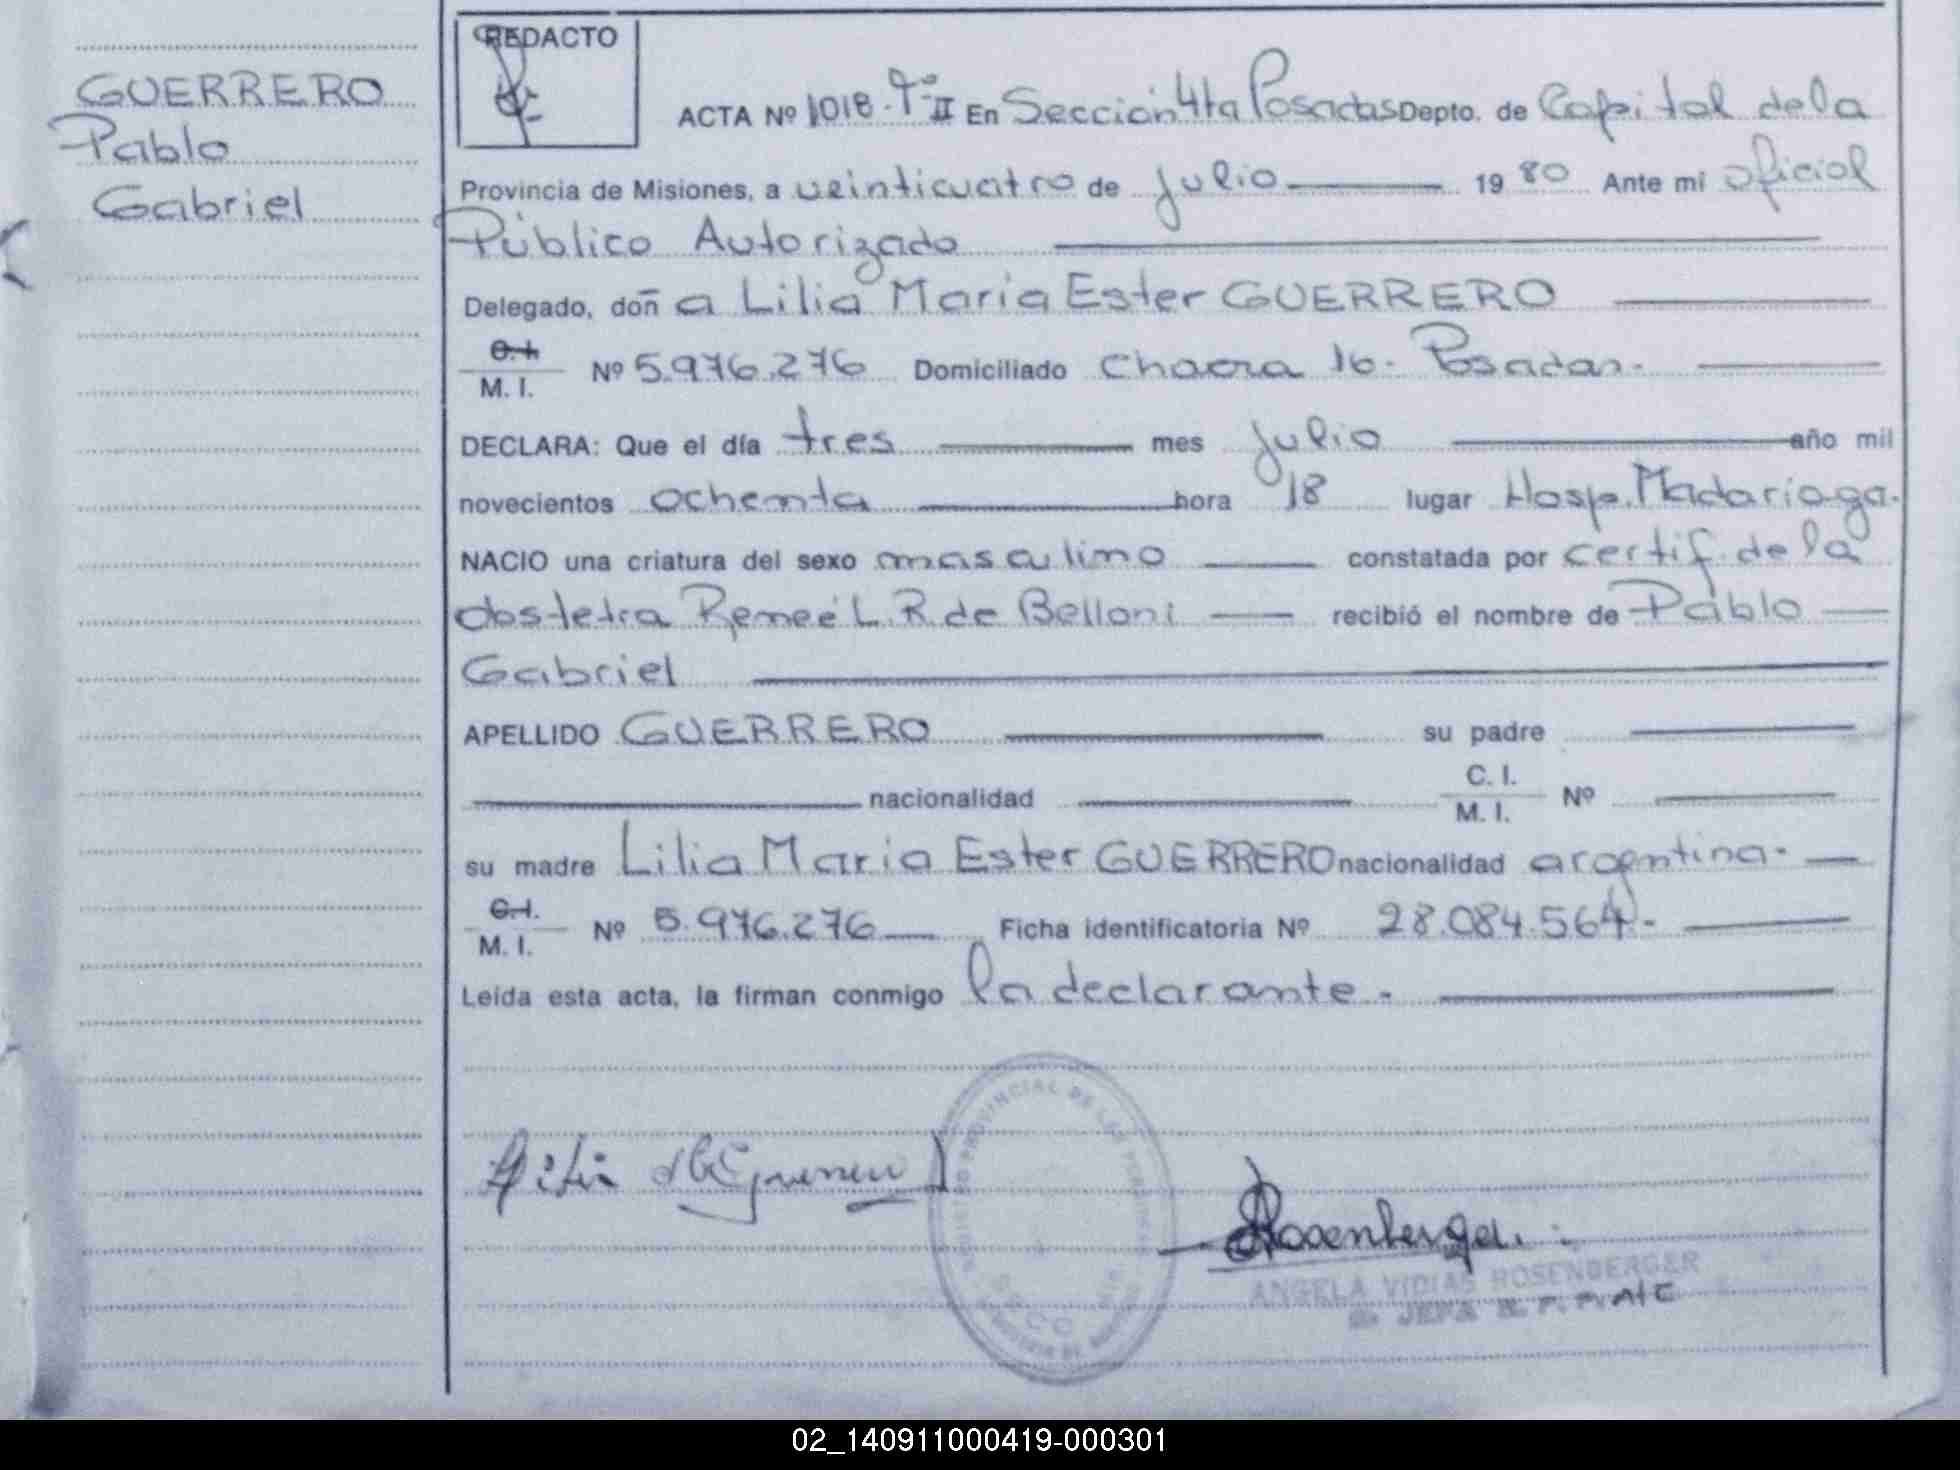 GUERRERO
Pablo
Gabriel
REDACTO
ACTA Nº 1018 Tº II En Sección 4ta Posadas Depto. de Capital de la
Provincia de Misiones, a veinticuatro de julio 19 80 Ante mi oficial
Público Autorizado
Delegado, doñ a Lilia Maria Ester GUERRERO
C. I.
M. I. Nº 5.976.276 Domiciliado Chacra 16 - Posadas.
DECLARA: Que el día tres mes julio año mil
novecientos ochenta hora 18 lugar Hosp. Madariaga.
NACIO una criatura del sexo masculino constatada por certif. de la
obstetra Reneé L. R. de Belloni recibió el nombre de Pablo
Gabriel
APELLIDO GUERRERO su padre
nacionalidad C. I.
M. I. Nº
su madre Lilia Maria Ester GUERRERO nacionalidad argentina.
C. I.
M. I. Nº 5.976.276 Ficha identificatoria Nº 28.084.564.-
Leída esta acta, la firman conmigo la declarante.
REGISTRO PROVINCIAL DE LAS PERSONAS
Rosenberger
ANGELA VIDIAS ROSENBERGER
JEFA
02_140911000419-000301